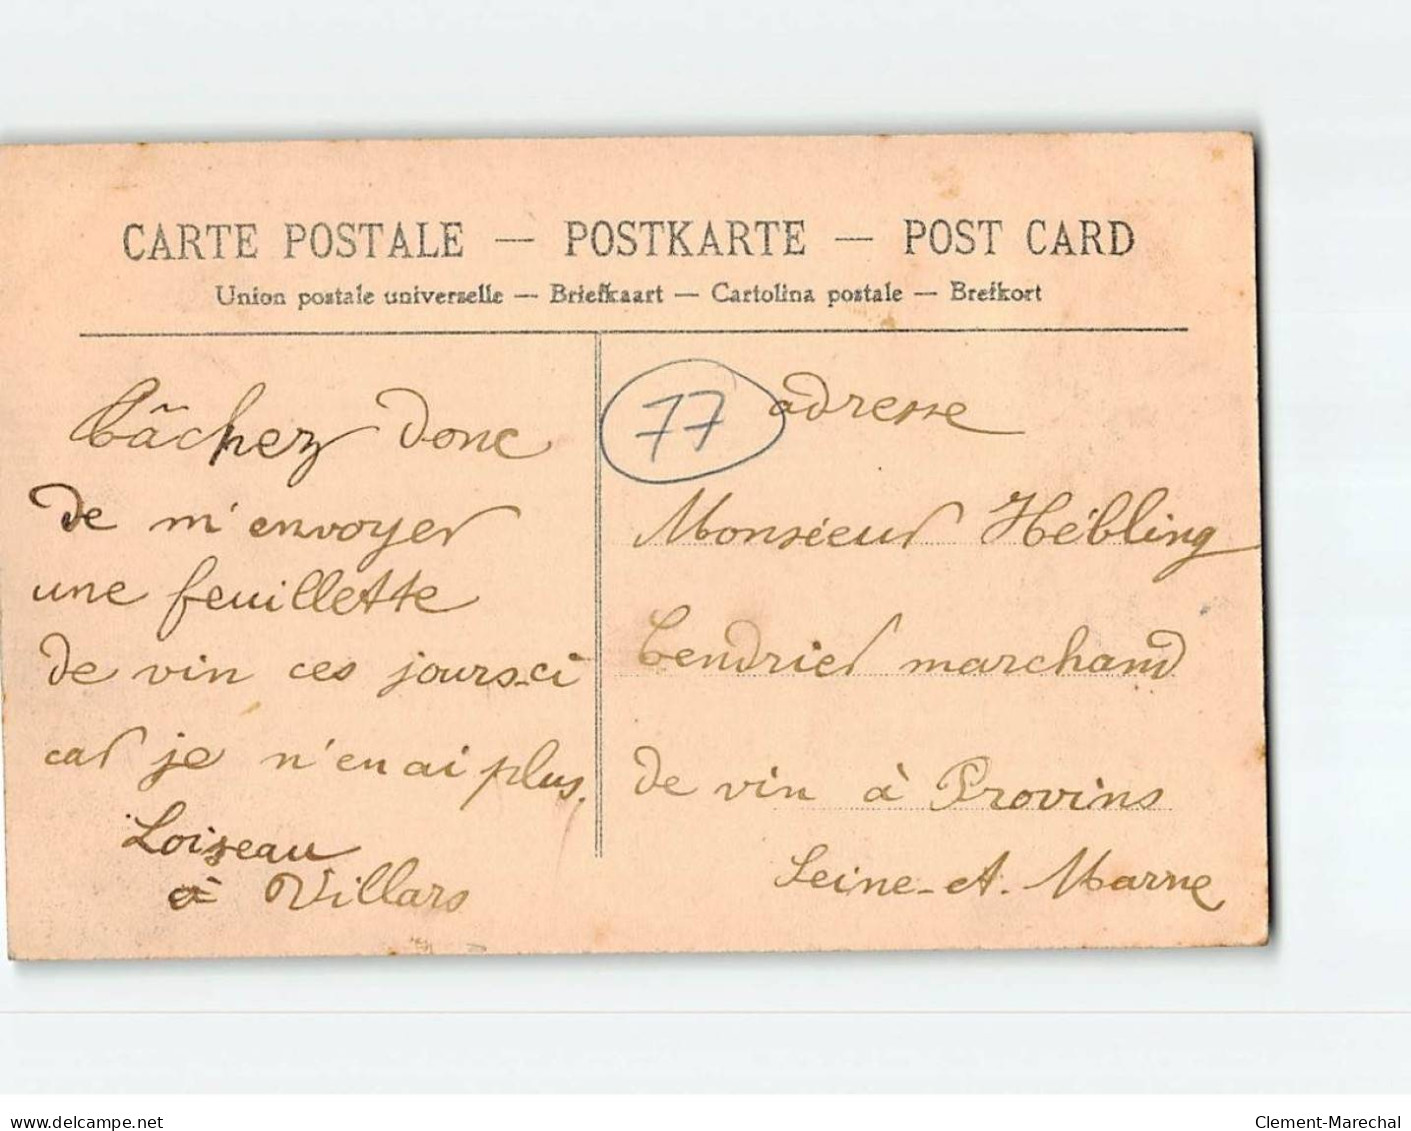 CARTE POSTALE — POSTKARTE — POST CARD
Union postale universelle — Briefkaart — Cartolina postale — Brefkort
Tâchez donc
de m'envoyer
une feuillette
de vin ces jours-ci
car je n'en ai plus.
Loiseau
à Villars
77
adresse
Monsieur Hébling
Tendrier marchand
de vin à Provins
Seine-et-Marne
delcampe.net
Clement-Marechal